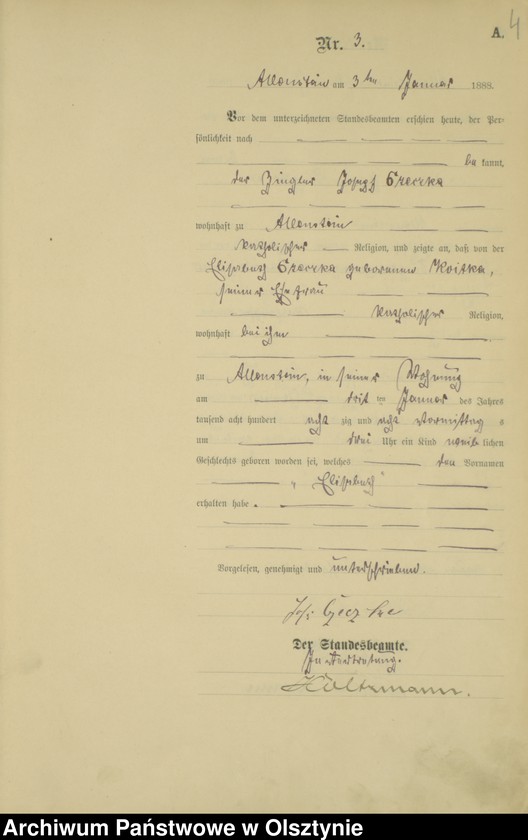 A. 4
Nr. 3.
Allenstein am 3ten Januar 1888.
Vor dem unterzeichneten Standesbeamten erschien heute, der Per-
sönlichkeit nach
bekannt,
der Ziegler Joseph
wohnhaft zu Allenstein
katholischer Religion, und zeigte an, daß von der
Elisabeth geborenen Koitka,
seiner Ehefrau
katholischer Religion,
wohnhaft bei ihm
zu Allenstein, in seiner Wohnung
am drit ten Januar des Jahres
tausend acht hundert acht zig und acht Vormittags
um drei Uhr ein Kind weiblichen
Geschlechts geboren worden sei, welches den Vornamen
„Elisabeth"
erhalten habe.
Vorgelesen, genehmigt und unterschrieben.
Der Standesbeamte.
In Vertretung.
Holtzmann.
Archiwum Państwowe w Olsztynie